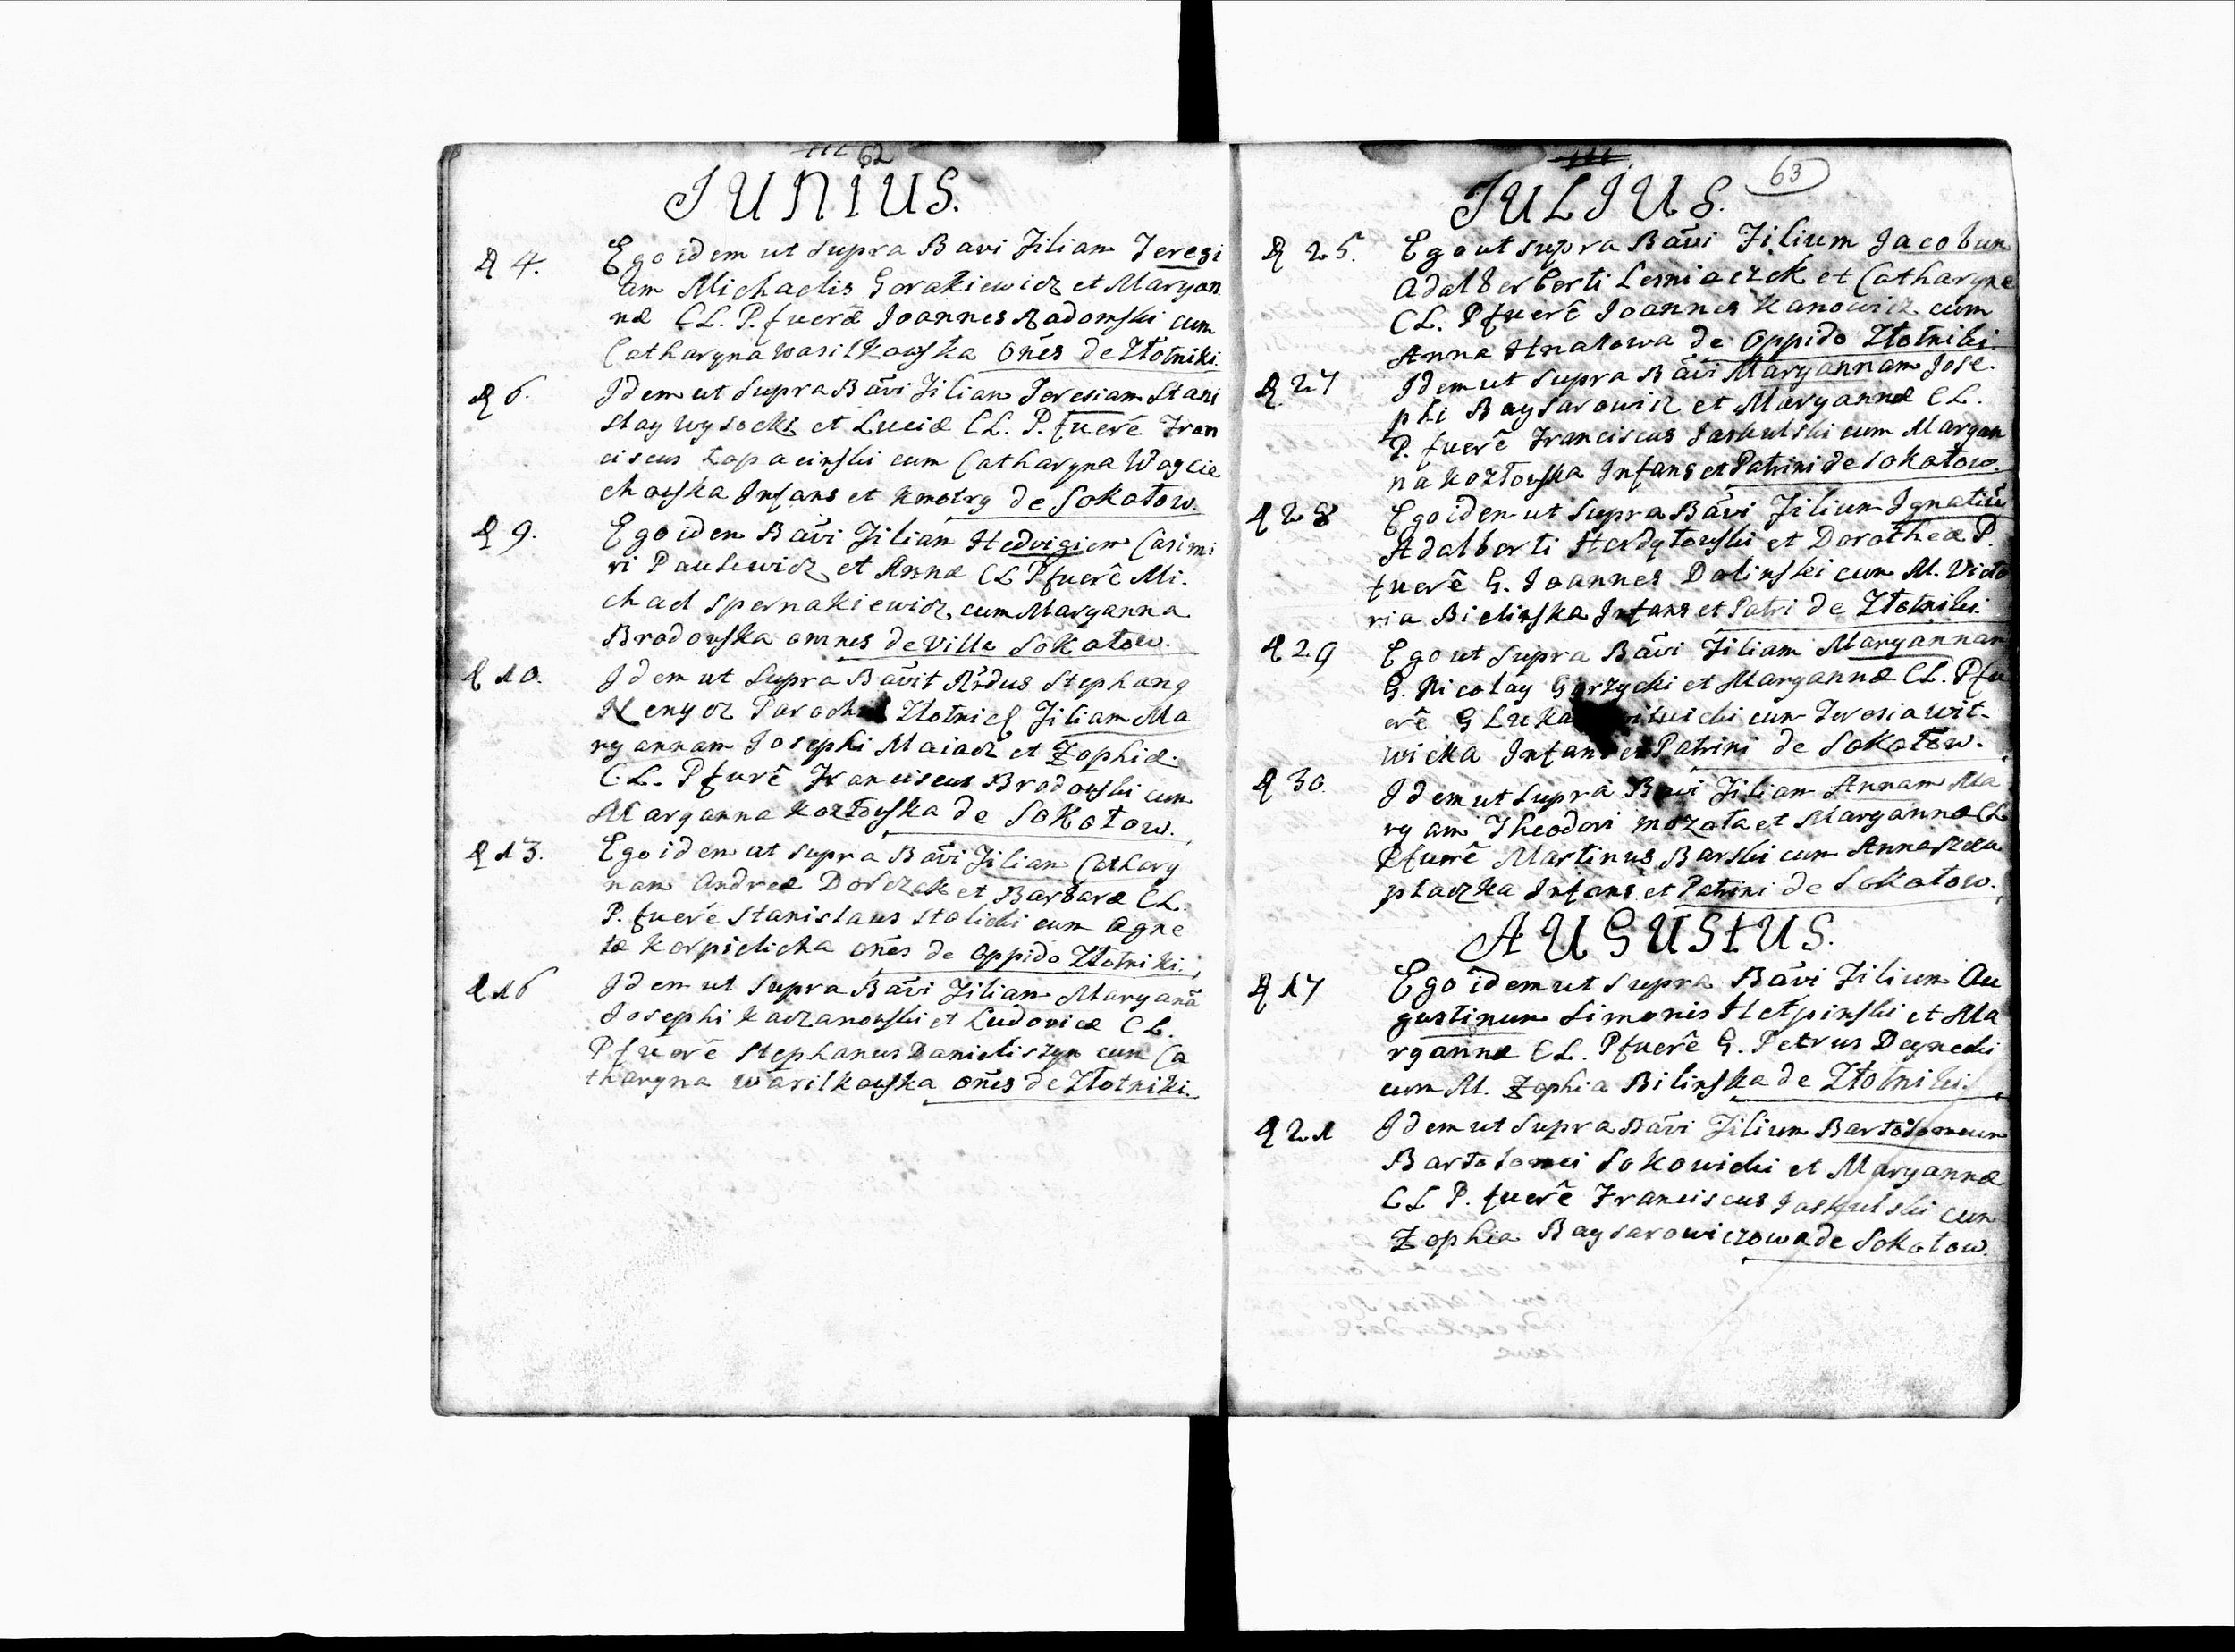 62
JUNIUS.
D 4. Ego idem ut supra Bavi Filiam Teresi
am Michaelis Gorakiewicz et Maryan
næ CL. P. fuerē Joannes Radomski cum
Catharyna Wasilkowska Oñes de Złotniki.
D 6. Idem ut supra Bāvi Filiam Teresiam Stani
slay Wysocki et Luciæ CL. P. fuerē Fran
ciscus Łopacinski cum Catharyna Woycie
chowska Infans et Kmotry de Sokołow.
D 9. Ego idem Bāvi Filiam Hedvigiem Casimi
ri Paulewicz et Annæ CL P fuerē Mi.
chael Spernakiewicz cum Maryanna
Brodowska omnes de Ville Sokołow.
D 10. Idem ut supra Bāvit Rñdus Stephany
Kenycz Paroch Złotnic Filiam Ma
ryannam Josephi Maiacz et Zophiæ.
C.L. P furē Franciscus Brodowski cum
Maryanna Kozłowska de Sokołow.
D 13. Ego idem ut supra Bāvi Filiam Cathary
nam Andreæ Dorczak et Barbaræ CL.
P. fuerē Stanislaus Stalicki cum Agne
ta Korpielicha oñes de Oppido Złotniki.
D 16 Idem ut supra Bāvi Filiam Maryanā
Josephi Kaczanowski et Ludovicæ CL.
P fuerē Stephanus Daniliszyn cum Ca
tharyna Wasilkowska Oñes de Złotniki.
63
JULIUS.
D 25. Ego ut supra Bāvi Filium Jacobum
Adalberberti Lesniaczek et Catharynæ
CL. P fuerē Joannes Kanowicz cum
Anna Hnatowa de Oppido Złotniki
D 27 Idem ut supra Bāvi Maryannam Jose.
phi Baysarowicz et Maryannæ CL.
P. fuerē Franciscus Jaskulski cum Maryan
na Kozłowska Infans et Patrini de Sokołow.
D 28 Ego idem ut supra Bāvi Filium Ignatiū
Adalberti Herdytowski et Dorotheæ P.
fuerē G. Joannes Dolinski cum M. Victo
ria Bielinska Infans et Patri de Złotniki.
D 29 Ego ut supra Bāvi Filiam Maryannam
G. Nicolay Gorzycki et Maryannæ CL. P fu
erē G Luka cum Teresia Wit-
wicka Infans et Patrini de Sokołow.
D 30. Idem ut supra Bavi Filiam Annam Ma
ryam Theodori Mozoła et Maryannæ CL
P fuerē Martinus Barski cum Anna
płaczka Infans et Patrini de Sokołow.
AUGUSTUS.
D 17 Ego idem ut supra Bāvi Filium Au
gustinum Simonis Hełpinski et Ma
ryannæ CL. P fuerē G. Petrus Deynecki
cum M. Zophia Bilinska de Złotniki.
D 21 Idem ut supra Bāvi Filium Bartolomeum
Bartolomei Sokowicki et Maryannæ
CL P. fuerē Franciscus Jaskulski cum
Zophia Baysarowiczowa de Sokołow.